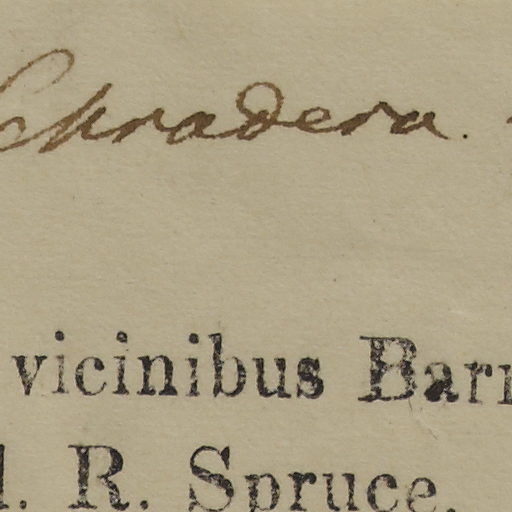 Schradera.
vicinibus Barr
l. R. Spruce.